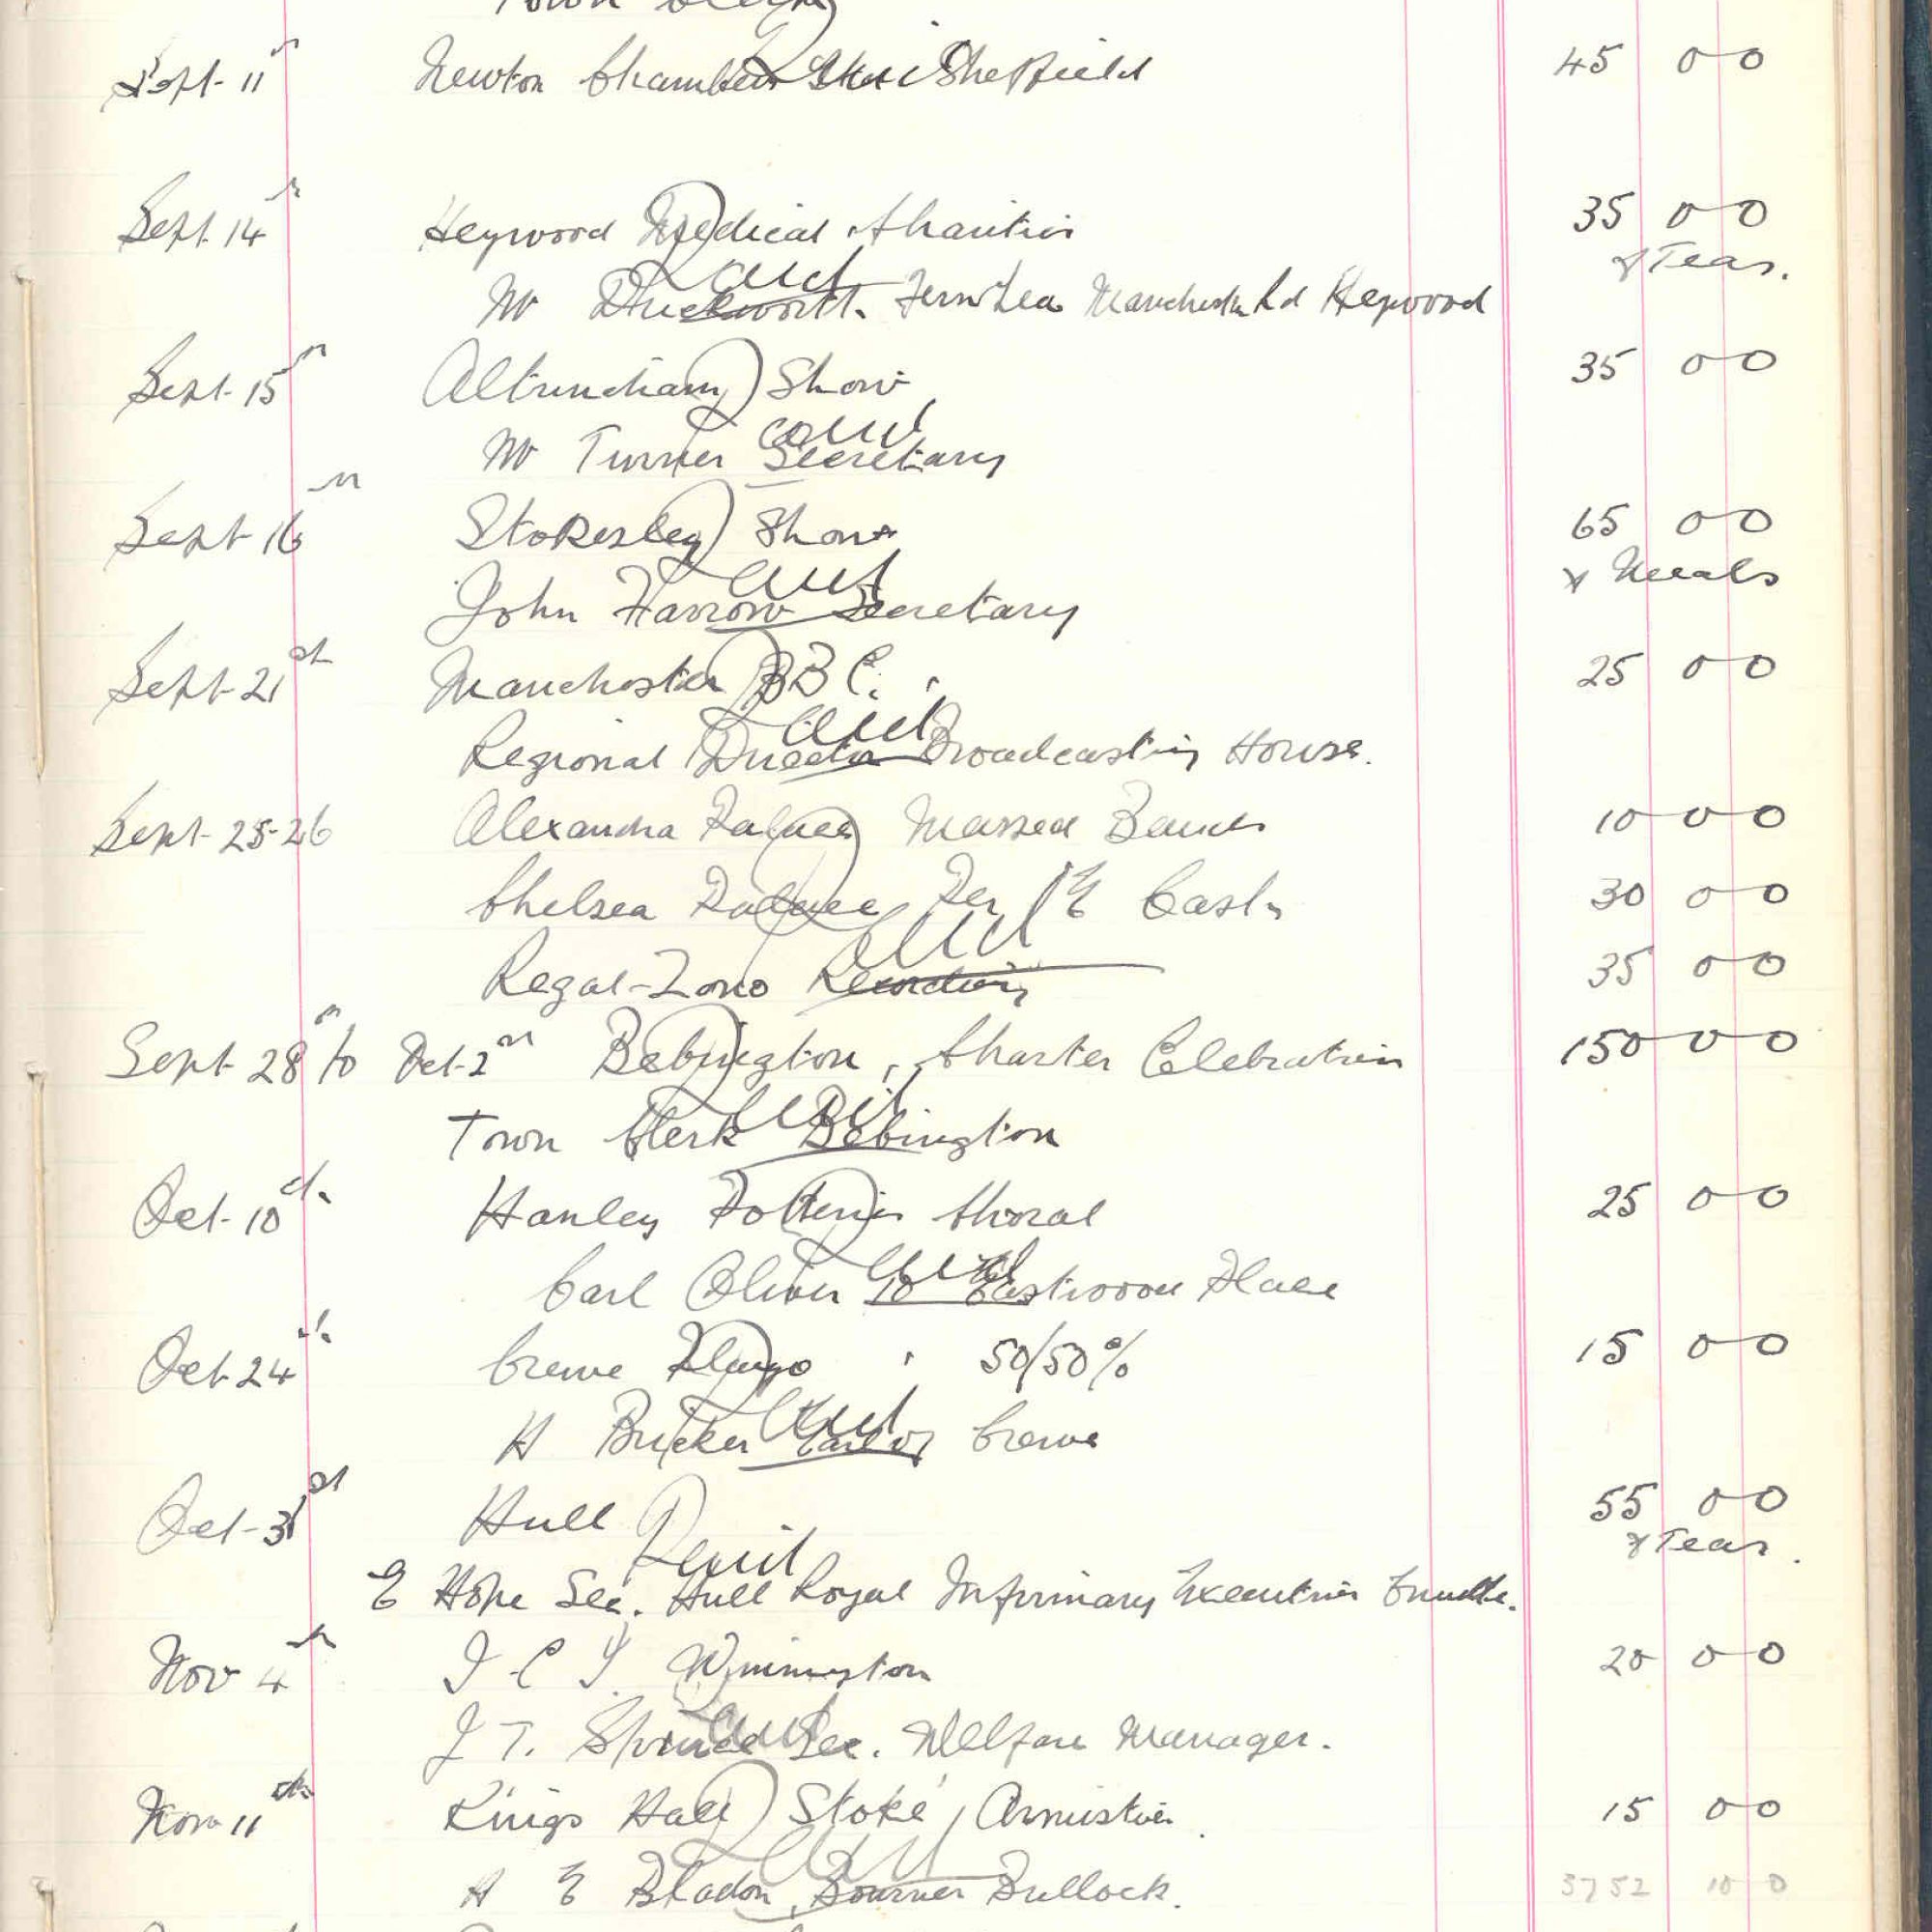 Town Clerk
Sept 11th Newton Chambers Sheffield 45 0 0
Sept 14th Heywood Medical Charities 35 0 0
Paid & Teas.
Mr Duckworth. Fern Lea Manchester Rd Heywood
Sept 15th Altrincham Show 35 0 0
Paid
Mr Turner Secretary
Sept 16th Stokesley Show 65 0 0
Paid & Meals
John Farrow Secretary
Sept 21st Manchester BBC. 25 0 0
Paid
Regional Director Broadcasting House.
Sept 25-26 Alexandra Palace Massed Bands 10 0 0
Chelsea Palace Per E Cash 30 0 0
Paid
Regal-Zono Recording 35 0 0
Sept 28th to Oct 2nd Bebington, Charter Celebration 150 0 0
Paid
Town Clerk Bebington
Oct 10th Hanley Potteries Choral 25 0 0
Paid
Carl Oliver 10 Eastwood Place
Oct 24th Crewe 50/50% 15 0 0
Paid
H Bricker Tailor Crewe
Oct 31st Hull 55 0 0
Paid & Teas.
E Hope Sec. Hull Royal Infirmary Executive Cmtte.
Nov 4th I C I Winnington 20 0 0
Paid
J T. Spruce Sec. Welfare Manager.
Nov 11th Kings Hall Stoke, Armistice. 15 0 0
Paid
H E Bladon, Bourner Bullock. 3752 10 0